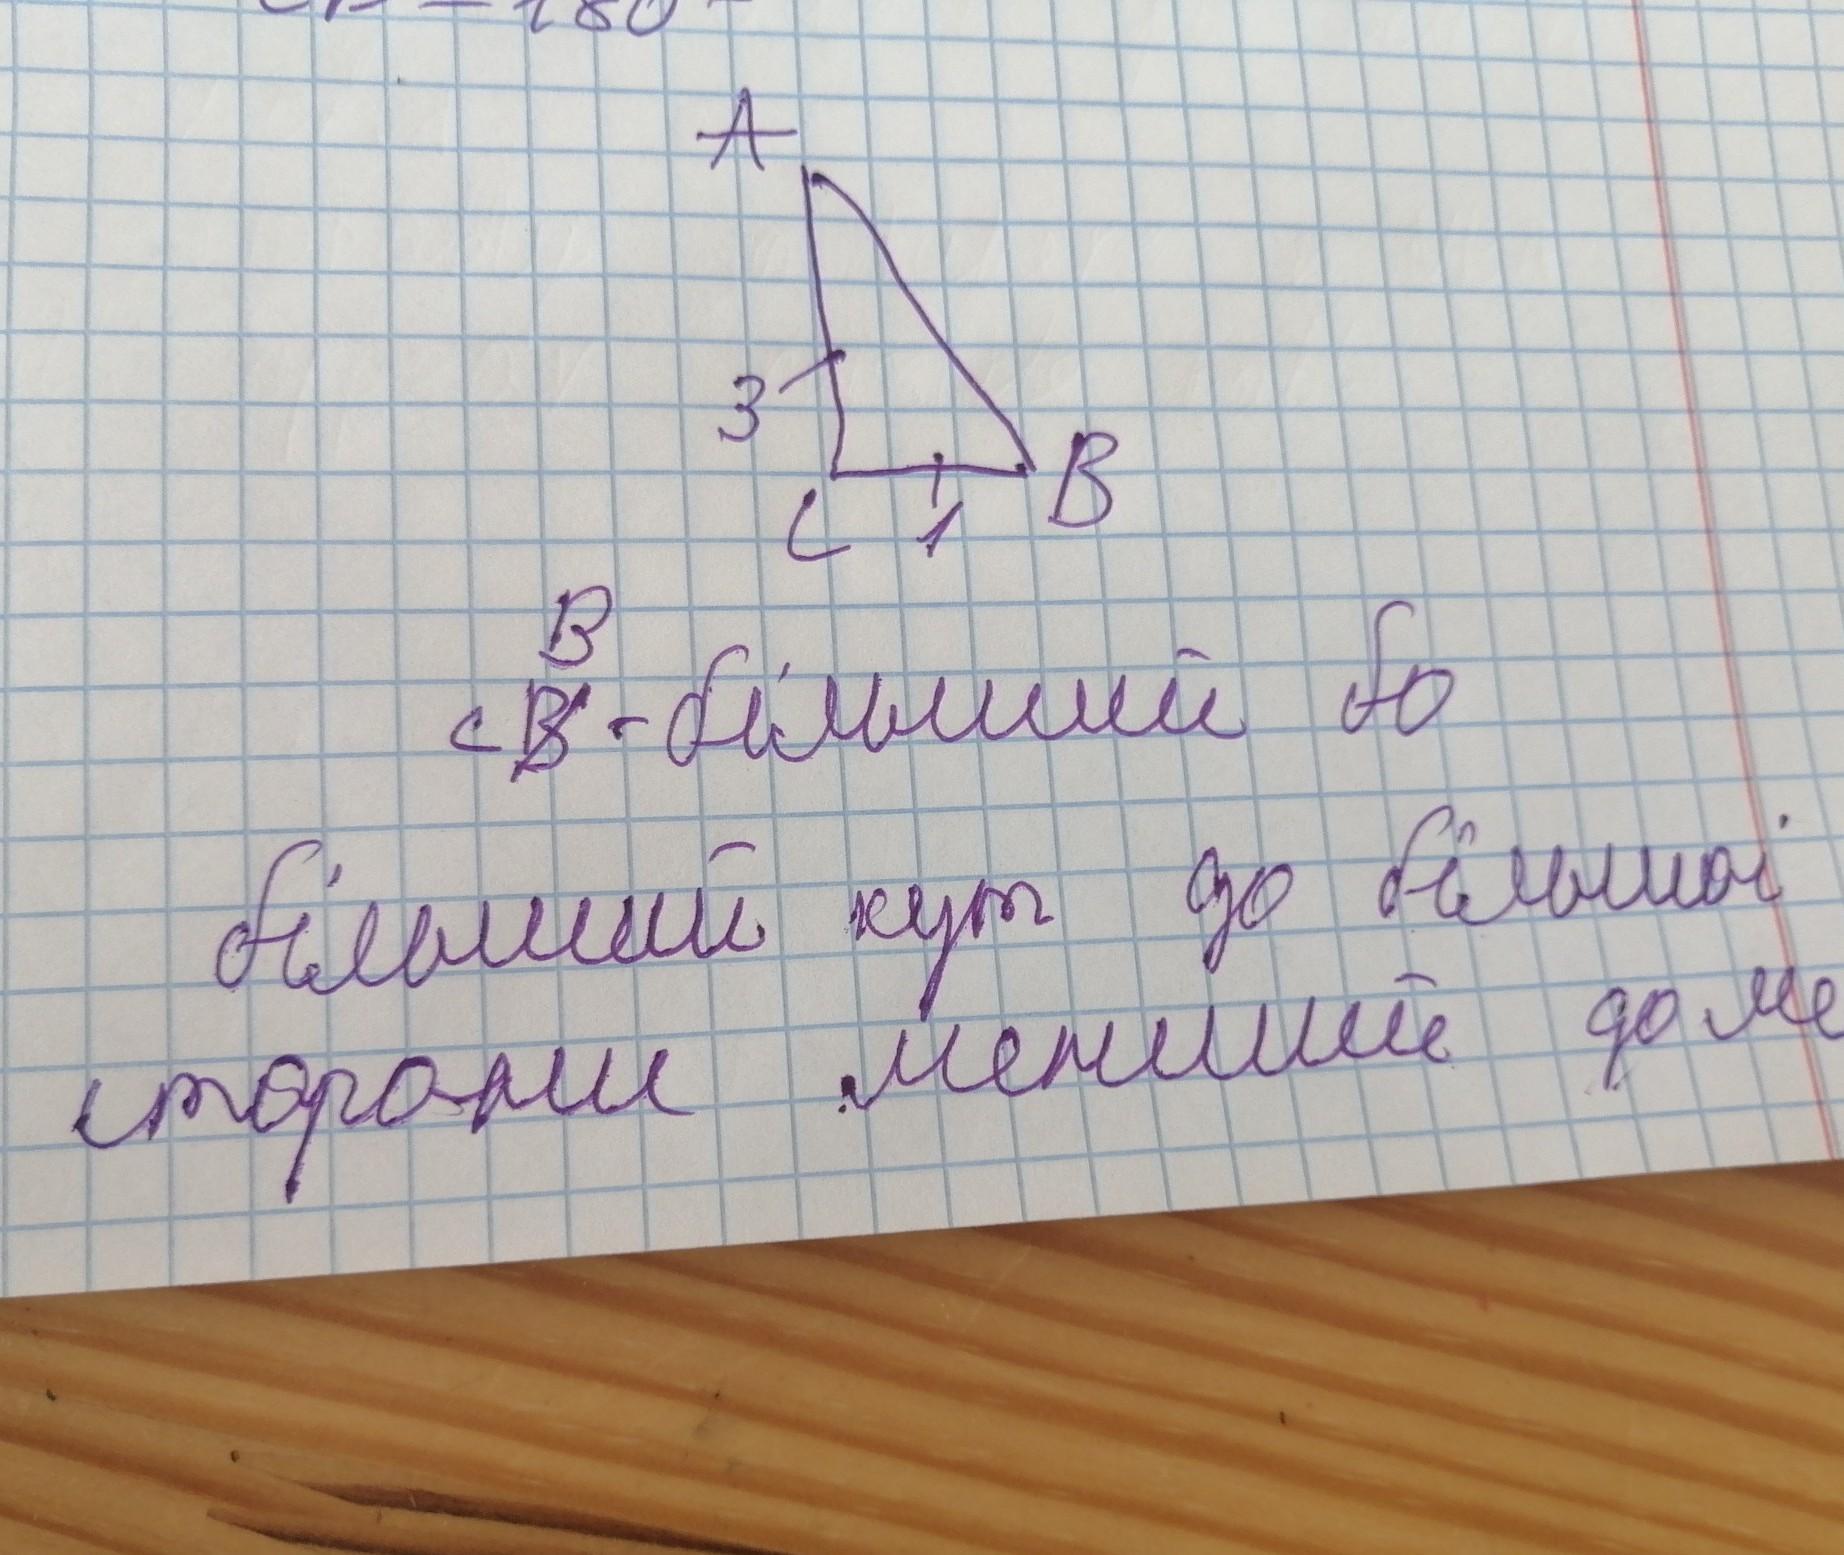 <B = 180° -
A
3
C 1 B
B
<B - більший бо
більший кут до більшої
сторони менший до ме